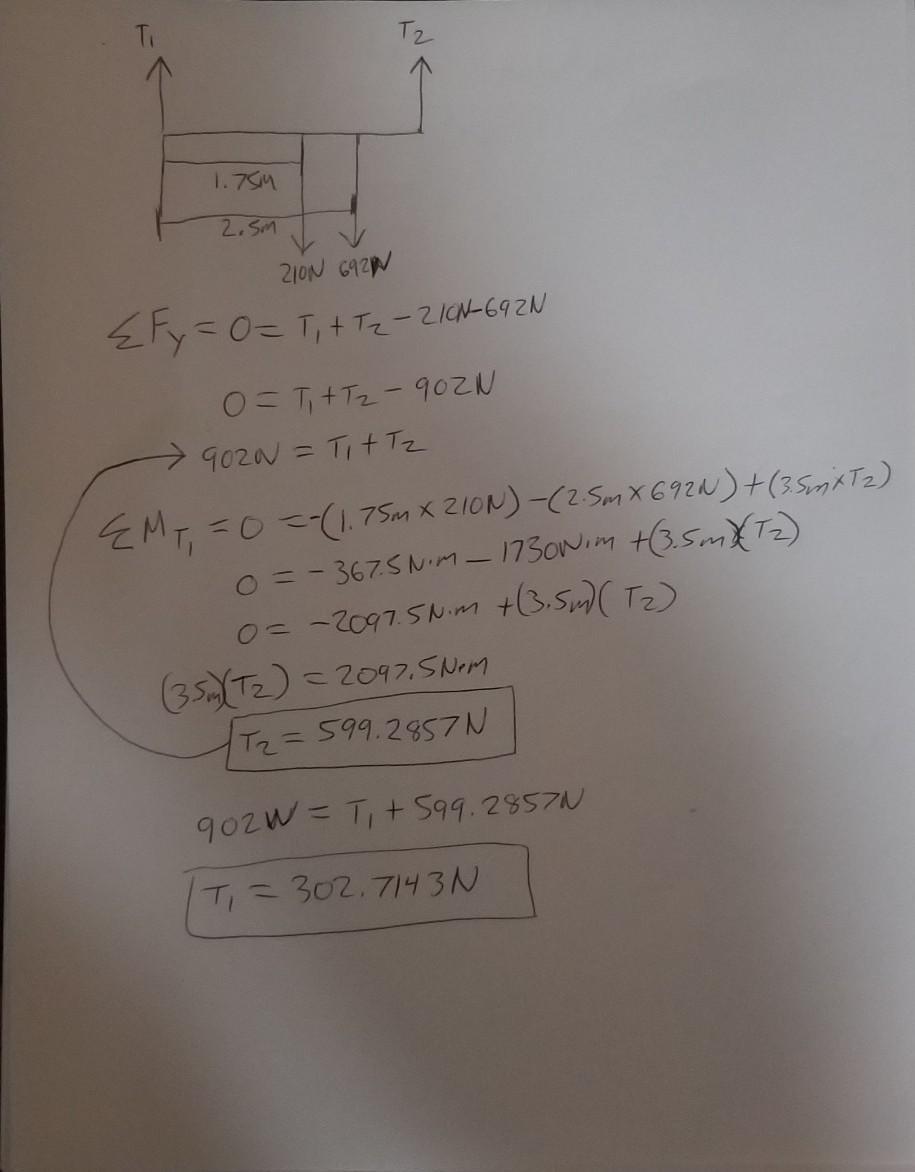 T₁ T₂
1.75m
2.5m
210N 692N
ΣFy = 0 = T₁ + T₂ - 210N - 692N
0 = T₁ + T₂ - 902N
902N = T₁ + T₂
ΣM_T₁ = 0 = -(1.75m × 210N) - (2.5m × 692N) + (3.5m × T₂)
0 = -367.5N·m - 1730N·m + (3.5m)(T₂)
0 = -2097.5N·m + (3.5m)(T₂)
(3.5m)(T₂) = 2097.5N·m
T₂ = 599.2857N
902N = T₁ + 599.2857N
T₁ = 302.7143N